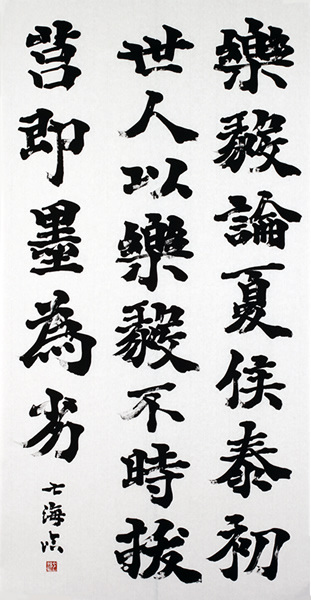 樂毅論夏侯泰初
世人以樂毅不時拔
莒即墨為劣
七海臨